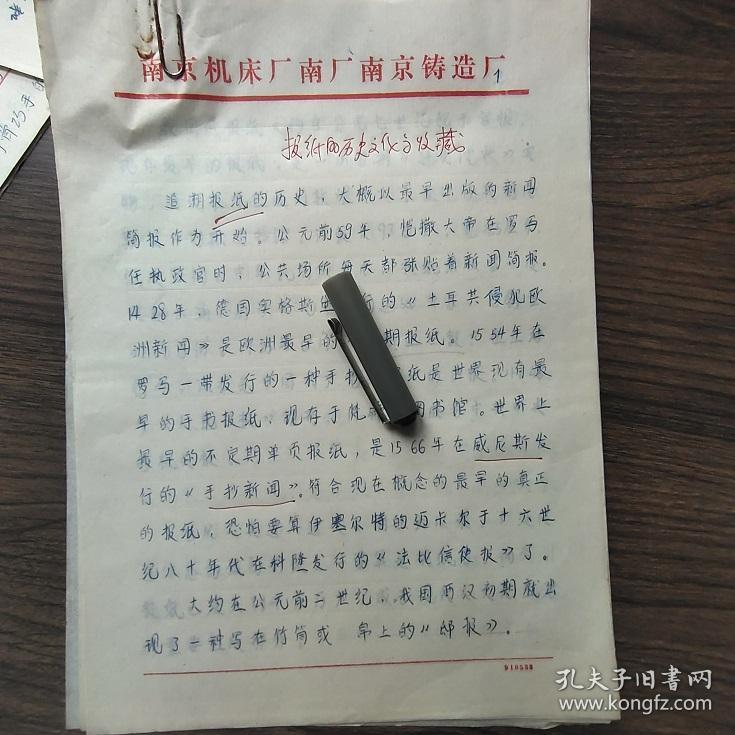 南京机床厂南厂南京铸造厂
1
报纸的历史文化与收藏
追溯报纸的历史，大概以最早出版的新闻
简报作为开始。公元前59年，恺撒大帝在罗马
任执政官时，公共场所每天都张贴着新闻简报。
1428年，德国奥格斯 行的《土耳其侵犯欧
洲新闻》是欧洲最早的 期报纸。1554年在
罗马一带发行的一种手抄 纸是世界现有最
早的手书报纸，现存于梵 图书馆。世界上
最早的不定期单页报纸，是1566年在威尼斯发
行的《手抄新闻》。符合现在概念的最早的真正
的报纸，恐怕要算伊塞尔特的迈卡尔于十六世
纪八十年代在科隆发行的《法比信使报》了。
大约在公元前二世纪，我国西汉初期就出
现了一种写在竹简或 帛上的《邸报》。
910538
孔夫子旧书网
kongfz.com